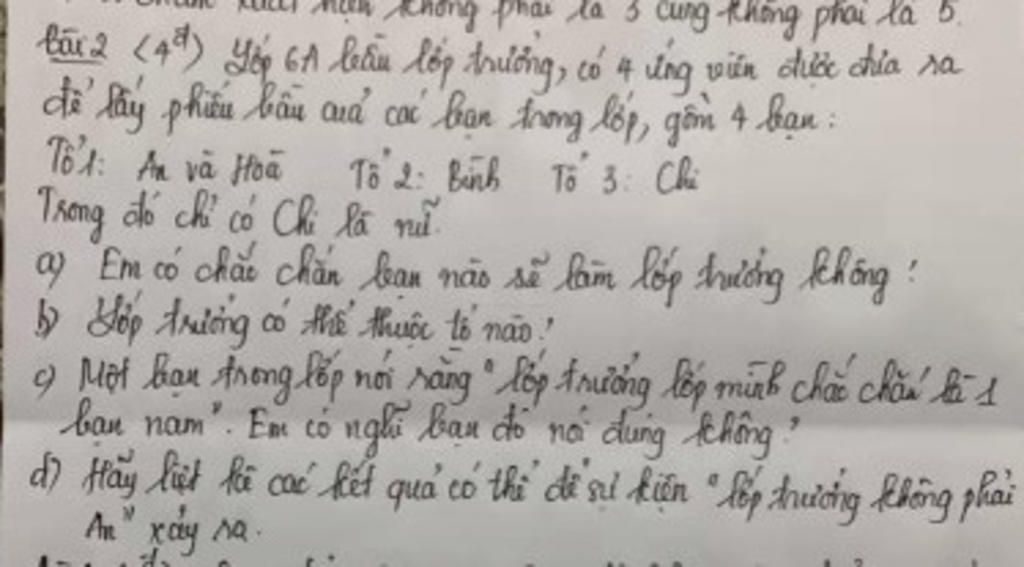 xuất hiện không phải là 3 cũng không phải là 5.
Bài 2 (4đ) Lớp 6A bầu lớp trưởng, có 4 ứng viên được đưa ra
để lấy phiếu bầu của các bạn trong lớp, gồm 4 bạn:
Tổ 1: An và Hoà Tổ 2: Bình Tổ 3: Chi
Trong đó chỉ có Chi là nữ.
a) Em có chắc chắn bạn nào sẽ làm lớp trưởng không?
b) Lớp trưởng có thể thuộc tổ nào?
c) Một bạn trong lớp nói rằng "lớp trưởng lớp mình chắc chắn là 1
bạn nam". Em có nghĩ bạn đó nói đúng không?
d) Hãy liệt kê các kết quả có thể để sự kiện "lớp trưởng không phải
An" xảy ra.